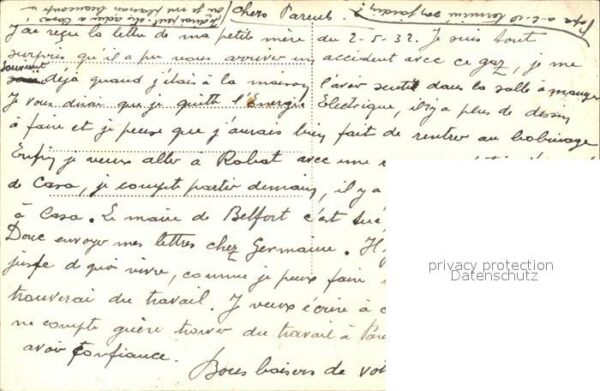 Papa a-t-il terminé son jardin?
chers Parents.
J'ai reçu la lettre de ma petite mère du 2-5-32. Je suis tout
surpris qu'il a pu nous arriver un accident avec ce gaz, je me
souvient déjà quand j'étais à la maison l'avoir sentit dans la salle à manger
Je vous dirai que je quitte l'Energie Electrique, il y a plus de dessin
à faire et je pense que j'aurais bien fait de rentrer au bobinage
Enfin je veux aller à Rabat avec une
de Casa, je compte partir demain, il y a
à Casa. Le maire de Belfort c'est tué
Donc envoyer mes lettres chez Germaine. Il y
juste de quoi vivre, comme je peux faire
trouverai du travail. Je veux écrire à
ne compte guère trouver du travail à Par
avoir confiance.
Bons baisers de vot
privacy protection
Datenschutz